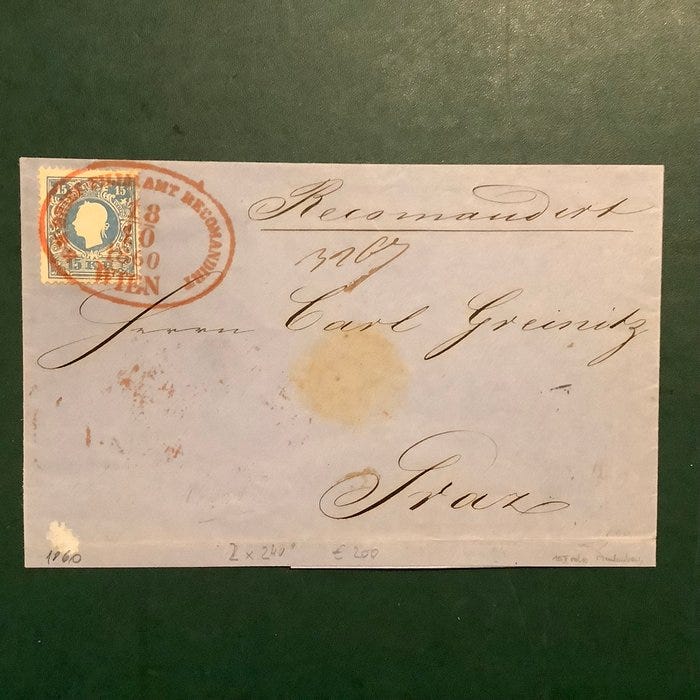 15 15
15 KR
AMT RECOMANDIRT
WIEN
Recomandirt
3267
Herrn Carl Greinitz
Graz
1860
2 x 240
€ 200